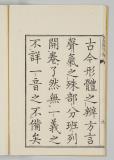 古今形體之辨方言
聲氣之殊部分班列
開卷了然無一義之
不詳一音之不備矣